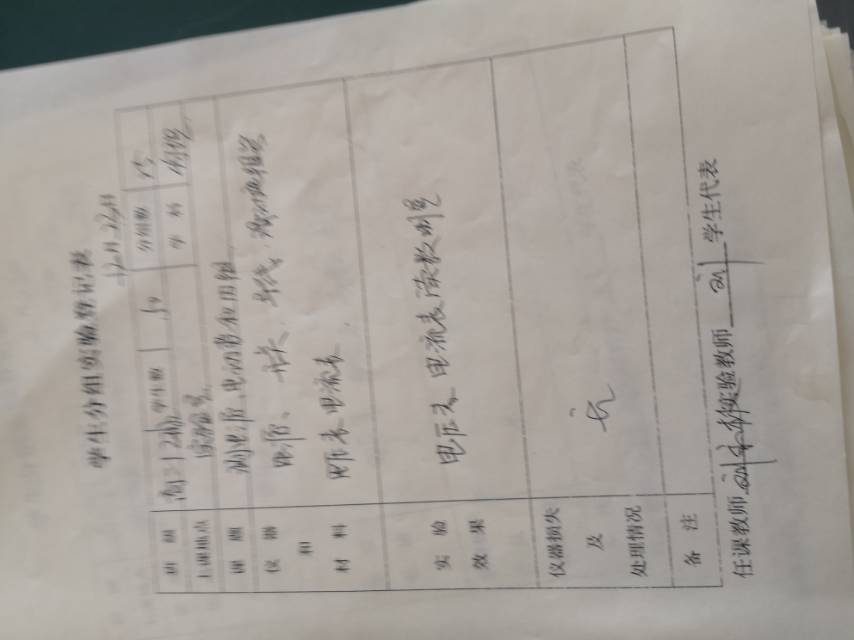 学生分组实验登记表
12月23日
班级 高二(2班) 学生数 50 分组数 25
上课地点 实验室 学科 物理
课题 测电源电动势和内阻
仪器和材料 电源、开关、导线、滑动变阻器
电压表 电流表
实验效果 电压表、电流表读数明显
仪器损失及处理情况 无
备注
任课教师 实验教师 刘 学生代表